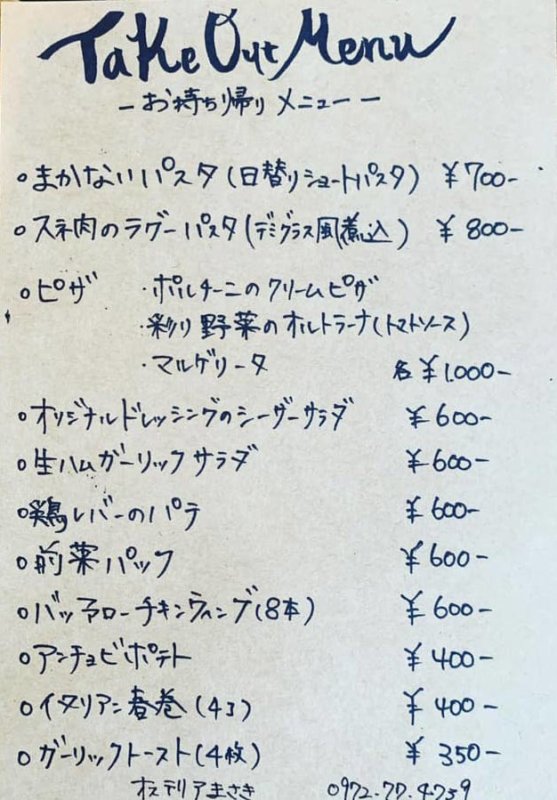 Take Out Menu
ーお持ち帰りメニューー
○まかないパスタ(日替りショートパスタ) ¥700-
○スネ肉のラグーパスタ(デミグラス風煮込) ¥800-
○ピザ ・ポルチーニのクリームピザ
・彩り野菜のオルトラーナ(トマトソース)
・マルゲリータ 各¥1.000-
○オリジナルドレッシングのシーザーサラダ ¥600-
○生ハムガーリックサラダ ¥600-
○鶏レバーのパテ ¥600-
○前菜パック ¥600-
○バッファローチキンウィング(8本) ¥600-
○アンチョビポテト ¥400-
○イタリアン春巻(4コ) ¥400-
○ガーリックトースト(4枚) ¥350-
オステリアまさき 0972-77-4739